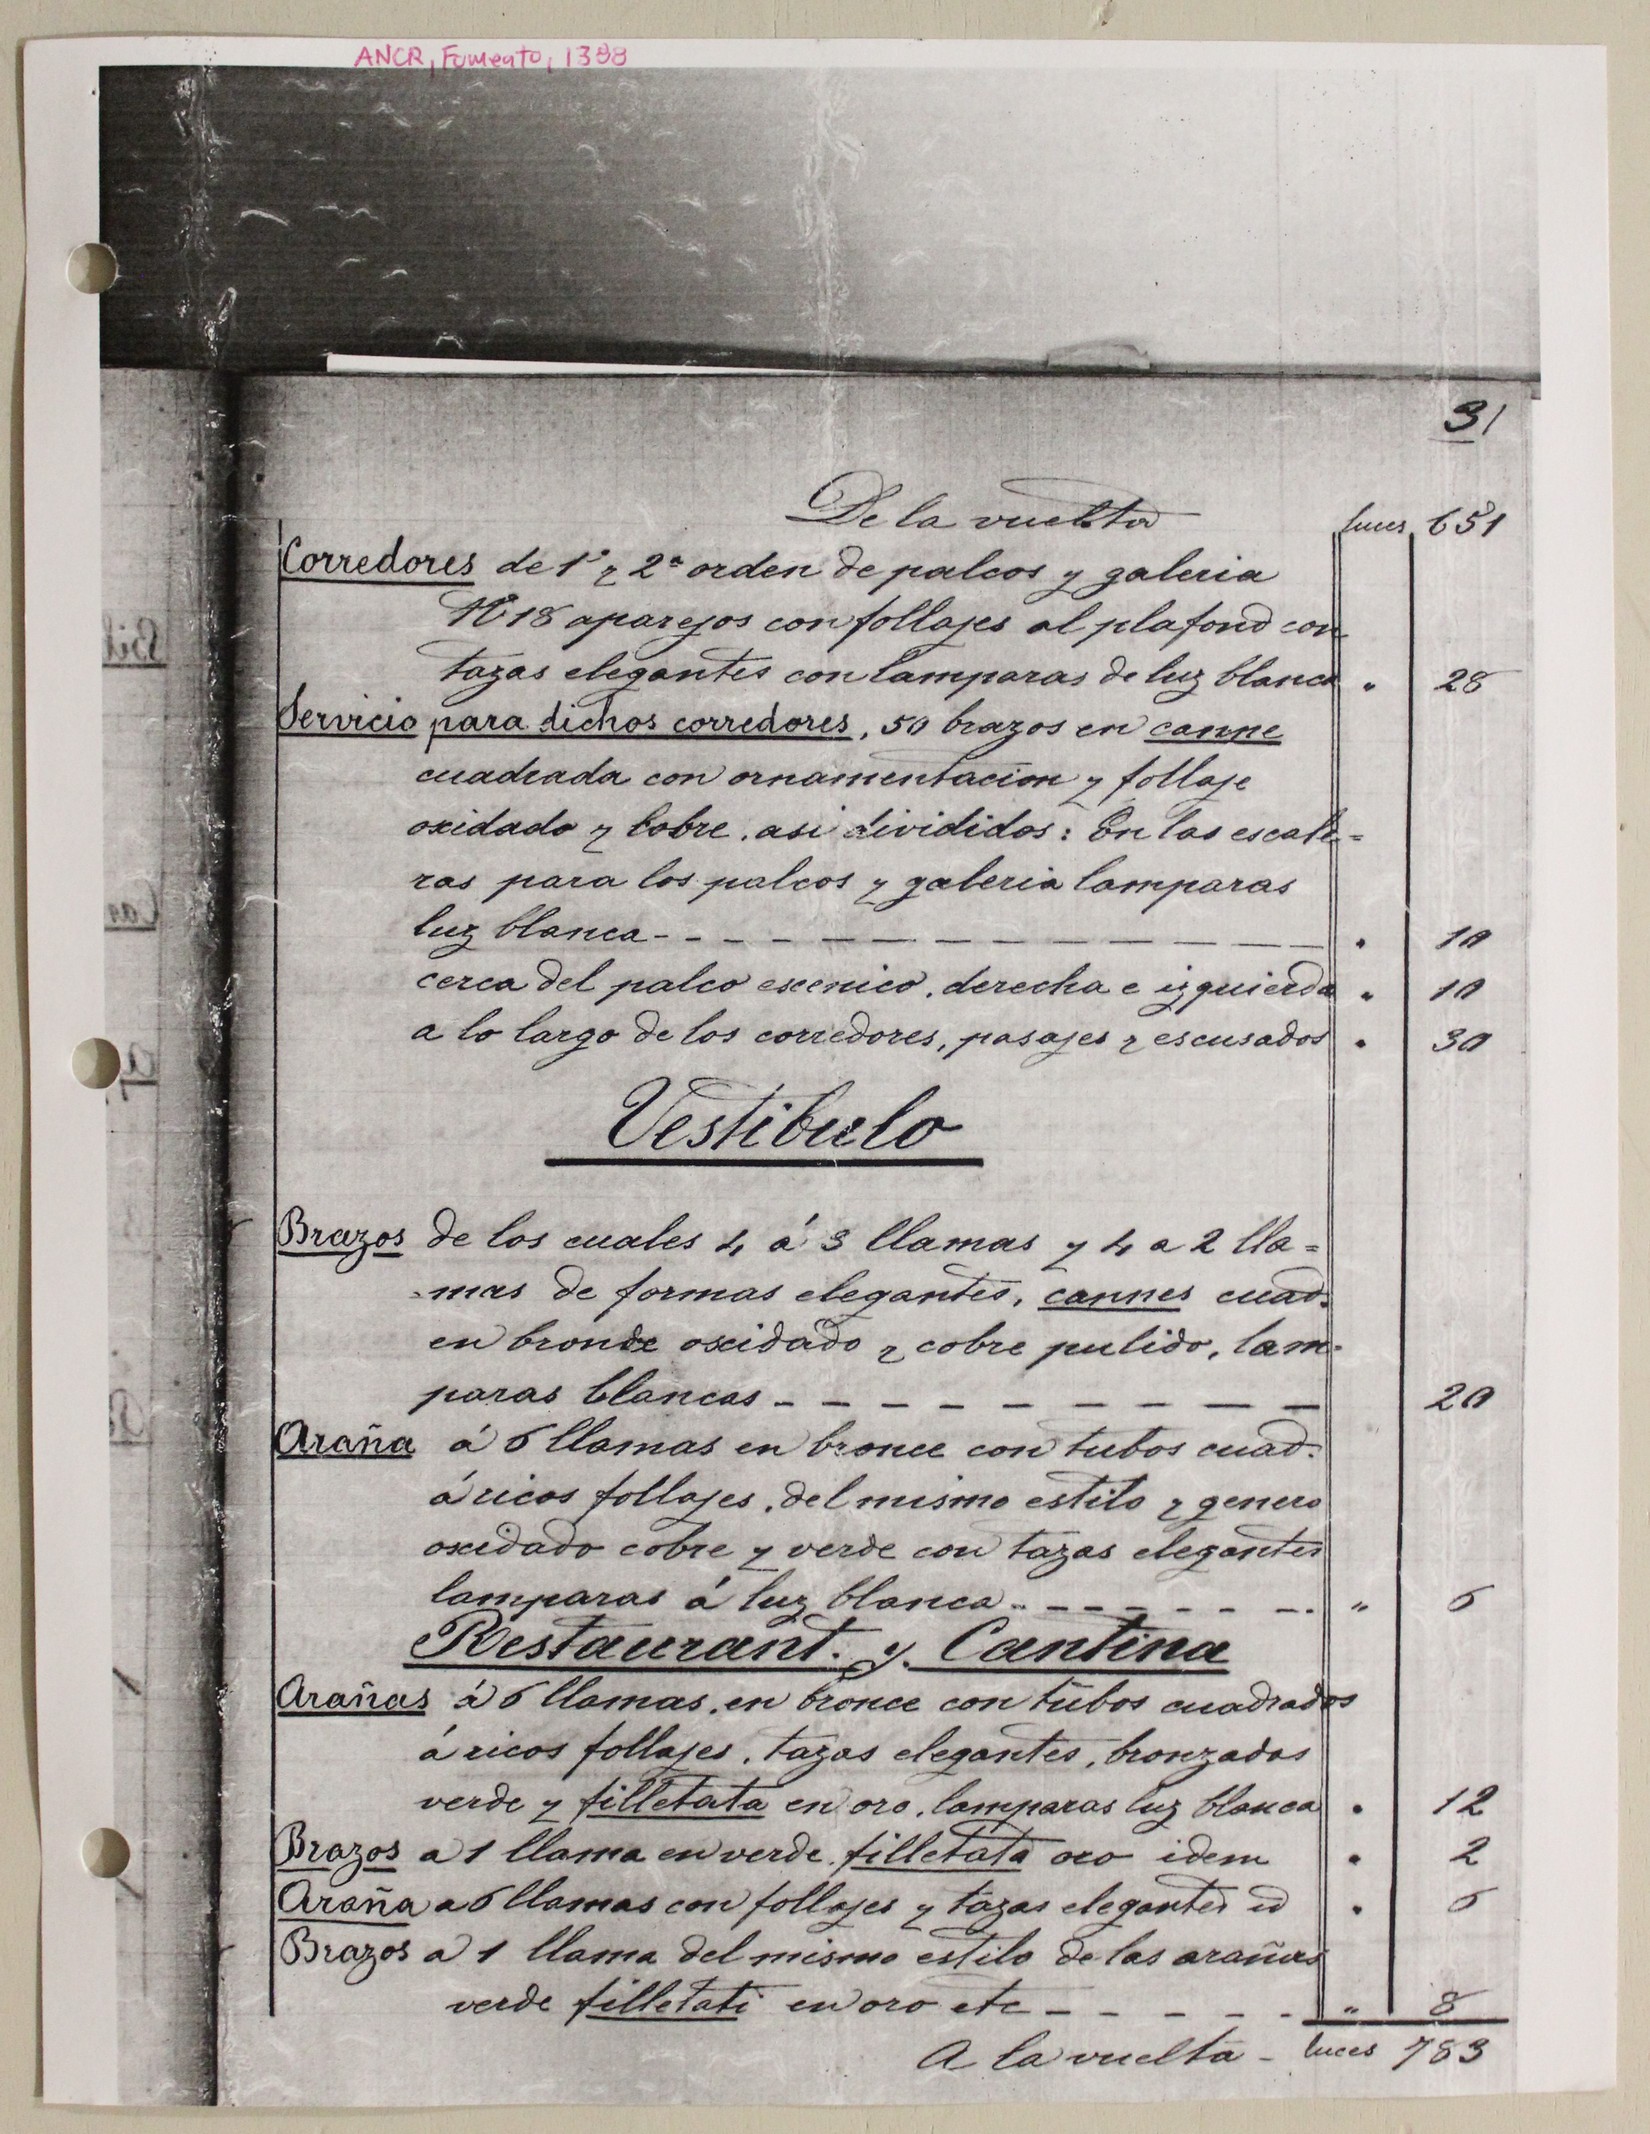 ANCR, Fomento, 1398
31
De la vuelta luces 651
Corredores de 1º y 2º orden de palcos y galeria
Nº 18 aparejos con follajes al plafond con
tazas elegantes con lamparas de luz blanca " 28
Servicio para dichos corredores, 50 brazos en canne
cuadrada con ornamentacion y follaje
oxidado y cobre. asi divididos: En las escale=
ras para los palcos y galeria lamparas
luz blanca - - - - - - - - - - - - " 10
cerca del palco escenico, derecha e izquierda " 10
a lo largo de los corredores, pasajes y escusados " 30
Vestibulo
Brazos de los cuales 4 á 3 llamas y 4 a 2 lla=
mas de formas elegantes, cannes cuad.
en bronce oxidado y cobre pulido, lam-
paras blancas - - - - - - - - - - 20
Araña á 6 llamas en bronce con tubos cuad.
á ricos follajes, del mismo estilo y genero
oxidado cobre y verde con tazas elegantes
lamparas á luz blanca - - - - - - - " 6
Restaurant. y. Cantina
Arañas á 6 llamas, en bronce con tubos cuadrados
á ricos follajes, tazas elegantes, bronzadas
verde y filletata en oro, lamparas luz blanca " 12
Brazos a 1 llama en verde, filletata oro idem " 2
Araña a 6 llamas con follajes y tazas elegantes id " 6
Brazos a 1 llama del mismo estilo de las arañas
verde filletati en oro etc - - - - - " 8
A la vuelta - luces 783